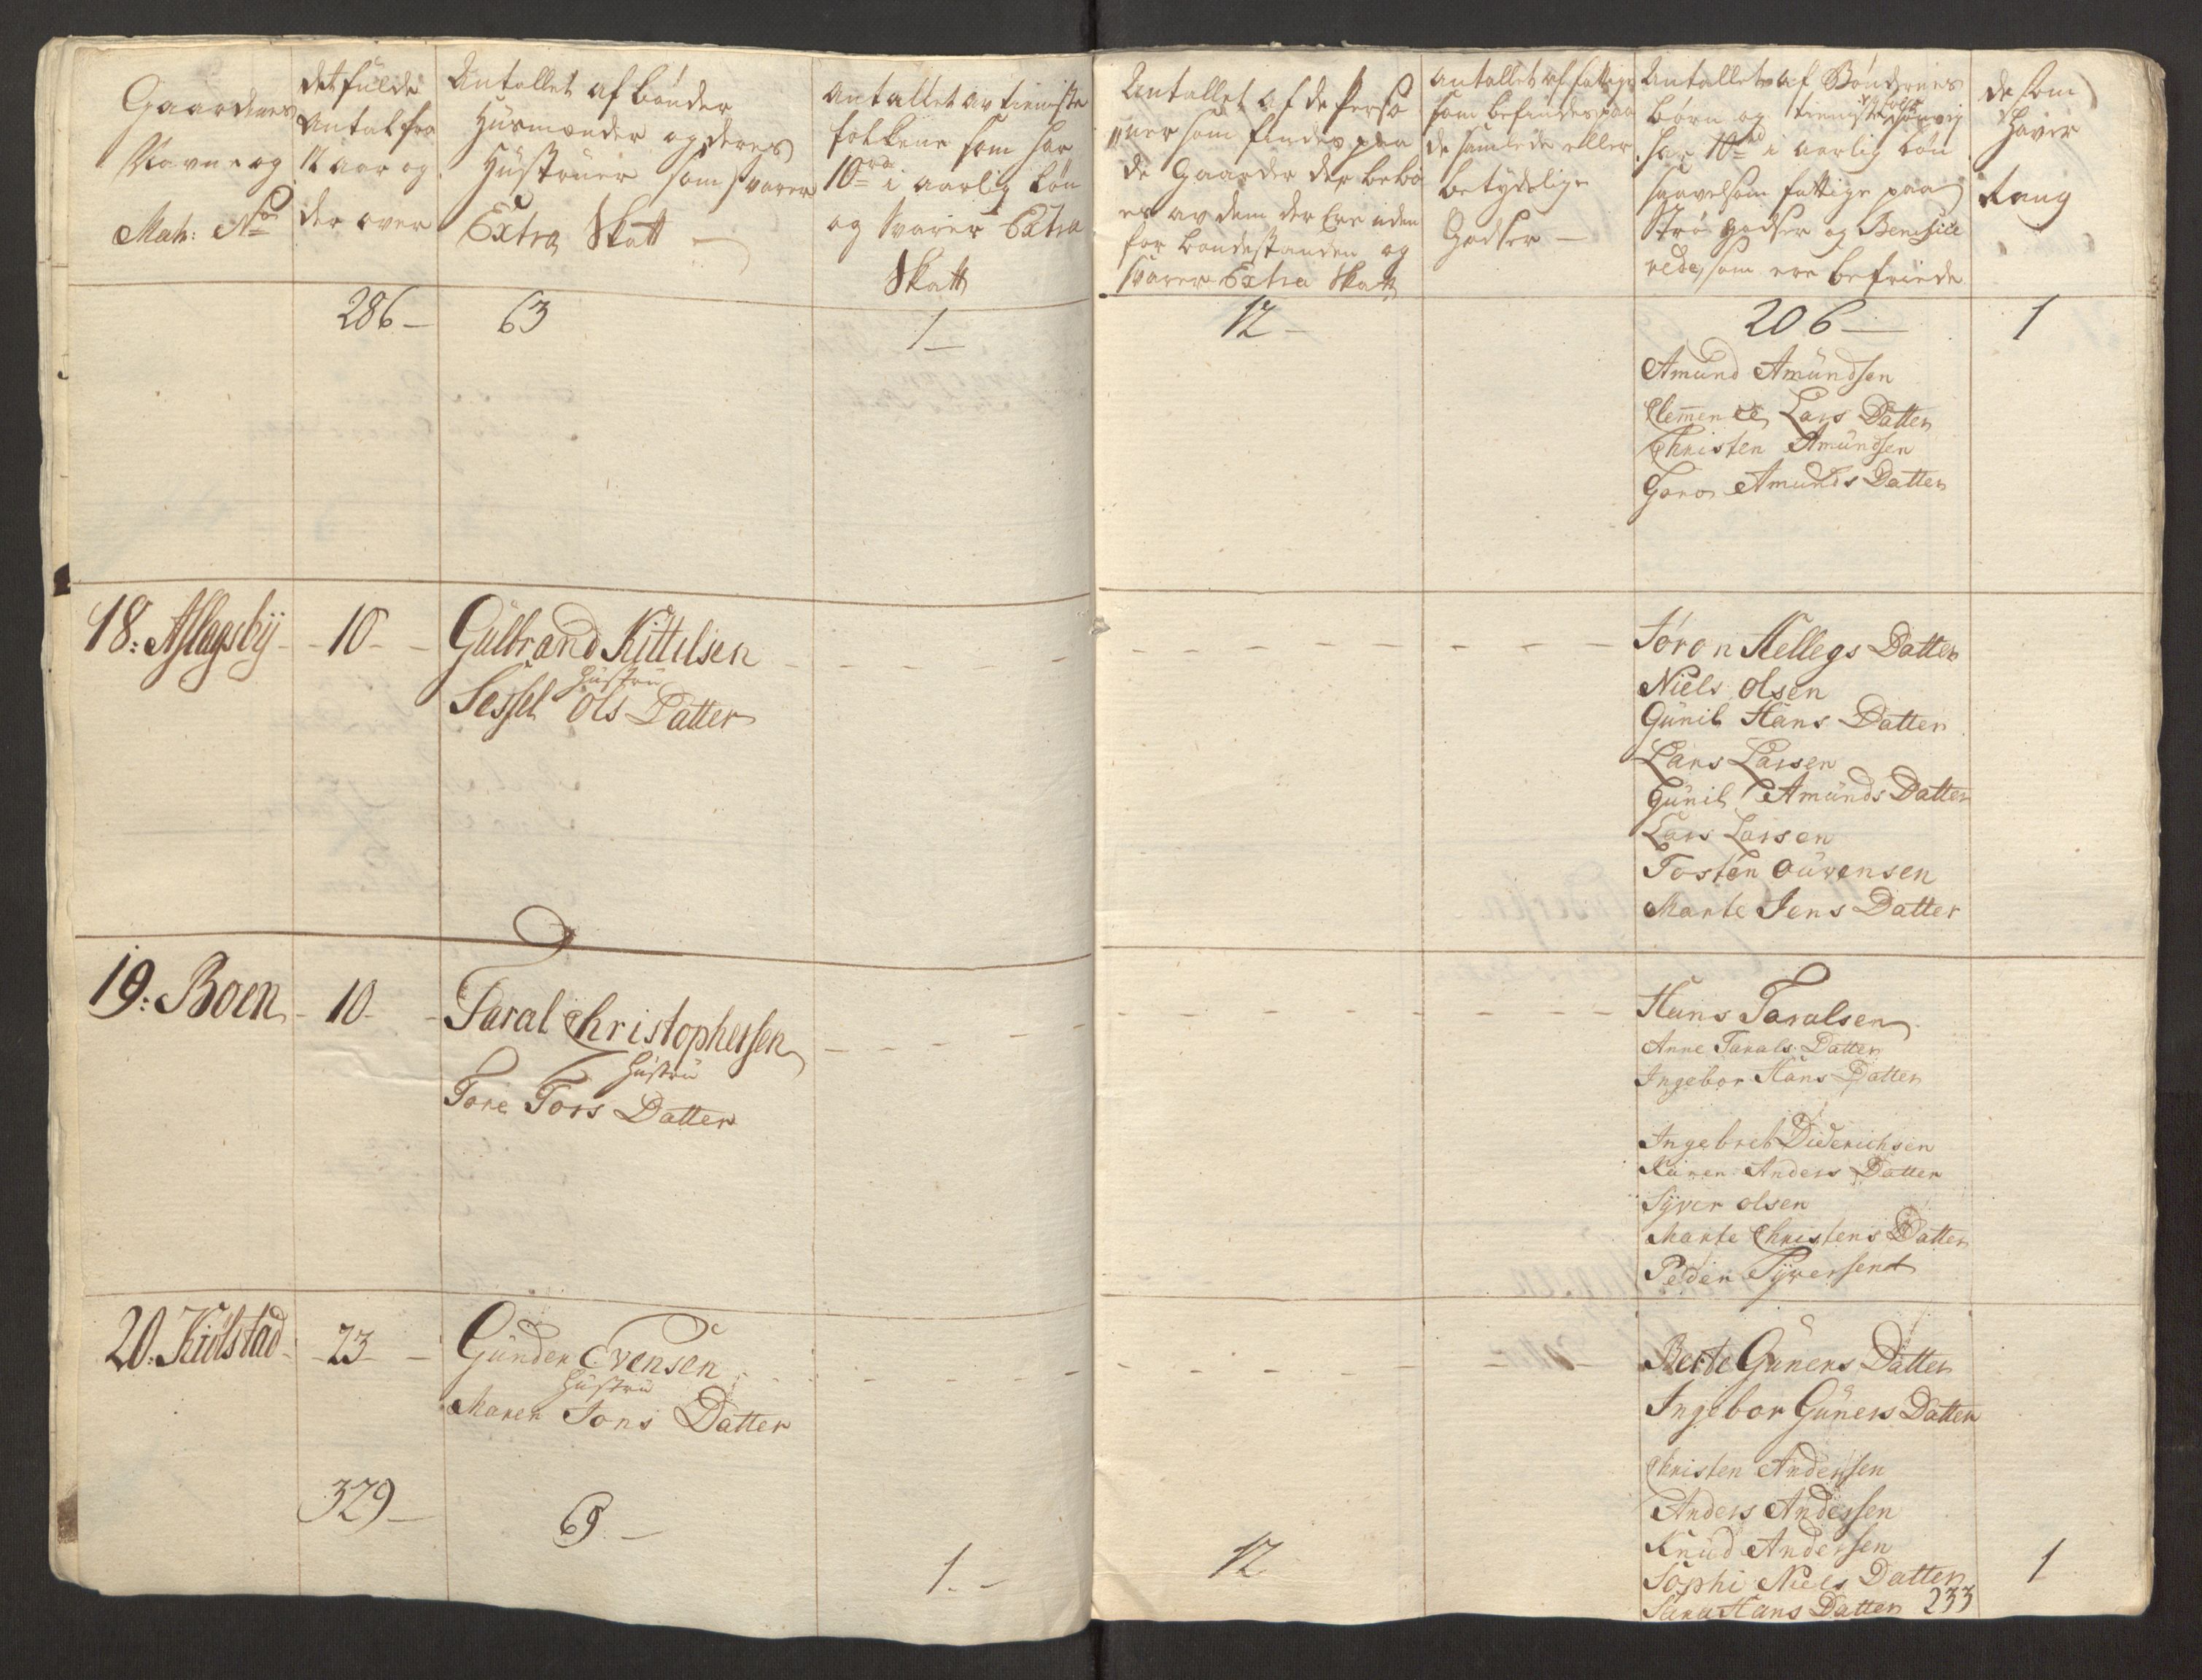 Gaardenes
Navne og
Matr: No
det fulde
Antal fra
12 aar og
der over
Antallet af bønder
Husmænder og deres
Hustruer som svarer
Extra Skatt
Antallet av tieniste
folkene som har
10 rd i aarlig løn
og svarer Extra
Skatt
Antallet af de Perso
ner som findes paa
de Gaarder der bebo
es av dem der Ere uden
for bondestanden og
svarer Extra Skatt
Antallet af fattige
som befindes paa
de samlede eller
betydelige
Godser
Antallet af Bøndernes
børn og tieniste folk som ej
har 10 rd i aarlig løn
saavelsom fattige paa
Strøe godser og Benefice
rede, som ere befriede
de som
haver
Rang
286 63 1 12 206 1
Amund Amundsen
Clemence Lars Datter
Christen Amundsen
Goro Amunds Datter
18: Aslagsbÿ 10 Gulbrand Kittilsen
Hustru
Sessel Ols Datter
Joron Kellegs Datter
Niels Olsen
Gunil Hans Datter
Lars Larsen
Gunil Amunds Datter
Lars Larsen
Tosten Ouvensen
Marte Jens Datter
19: Boen 10 Taral Christophersen
Hustru
Tore Tors Datter
Hans Taralsen
Anne Tarals Datter
Ingebor Hans Datter
Ingebret Diderichsen
Karen Anders Datter
Syver olsen
Marte Christens Datter
Peder Syversen
20. Kiølstad 23 Gunder Evensen
Hustru
Maren Jons Datter
Berte Guners Datter
Ingebor Guners Datter
Christen Andersen
Anders Andersen
Knud Andersen
Sophi Niels Datter
Sara Hans Datter 233
329 69 1 12 1